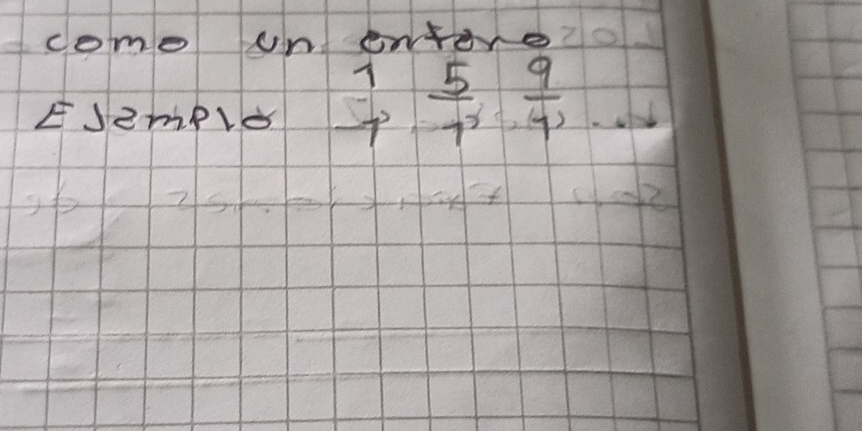 como un entero
Ejemplo 1/1, 5/1, 9/1, ...